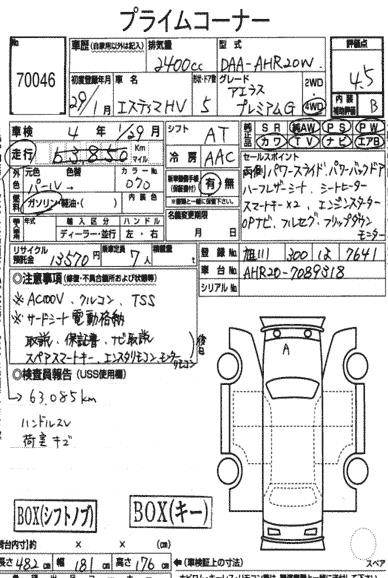 プライムコーナー
No
70046
車歴 (自家用以外は記入)
排気量
2400cc
型式
DAA-AHR20W
評価点
4.5
内装
補助評価
B
初度登録年月
29/1月
車名
エスティマHV
型・ドア数
5
グレード
アエラス
プレミアムG
2WD
4WD
車検
4年 1/29月
シフト
AT
SR
純AW
PS
PW
カワ
TV
ナビ
エアB
走行
63,850
Km
マイル
冷房
AAC
外色
元色
パール
色替
カラーNo
070
内装色
燃料
ガソリン・軽油・( )
新車整備手帳
(保証書付)
有・無
名義変更期限
月 日
セールスポイント
両側パワースライド、パワーバックドア
ハーフレザーシート、シートヒーター
スマートキー×2、エンジンスターター
OPナビ、フルセグ、フリップダウン
モニター
年式
輸入区分
ハンドル
ディーラー・並行
左・右
リサイクル
預託金
13570円
乗車定員
7人
積載量
登録No
旭川 300 は 7641
車台No
AHR20-7089818
シリアルNo
◎注意事項 (修復・不具合箇所および状態等)
※AC100V、クルコン、TSS
※サードシート電動格納
取説、保証書、ナビ取説
スペアスマートキー、エンスタリモコン、モニターリモコン
◎検査員報告 (USS使用欄)
63,085km
ハンドルスレ
荷室キズ
A
BOX(シフトノブ)
BOX(キー)
(荷台内寸)約 × × (cm)
長さ 482cm 幅 181cm 高さ 176cm
(車検証上の寸法)
スペア